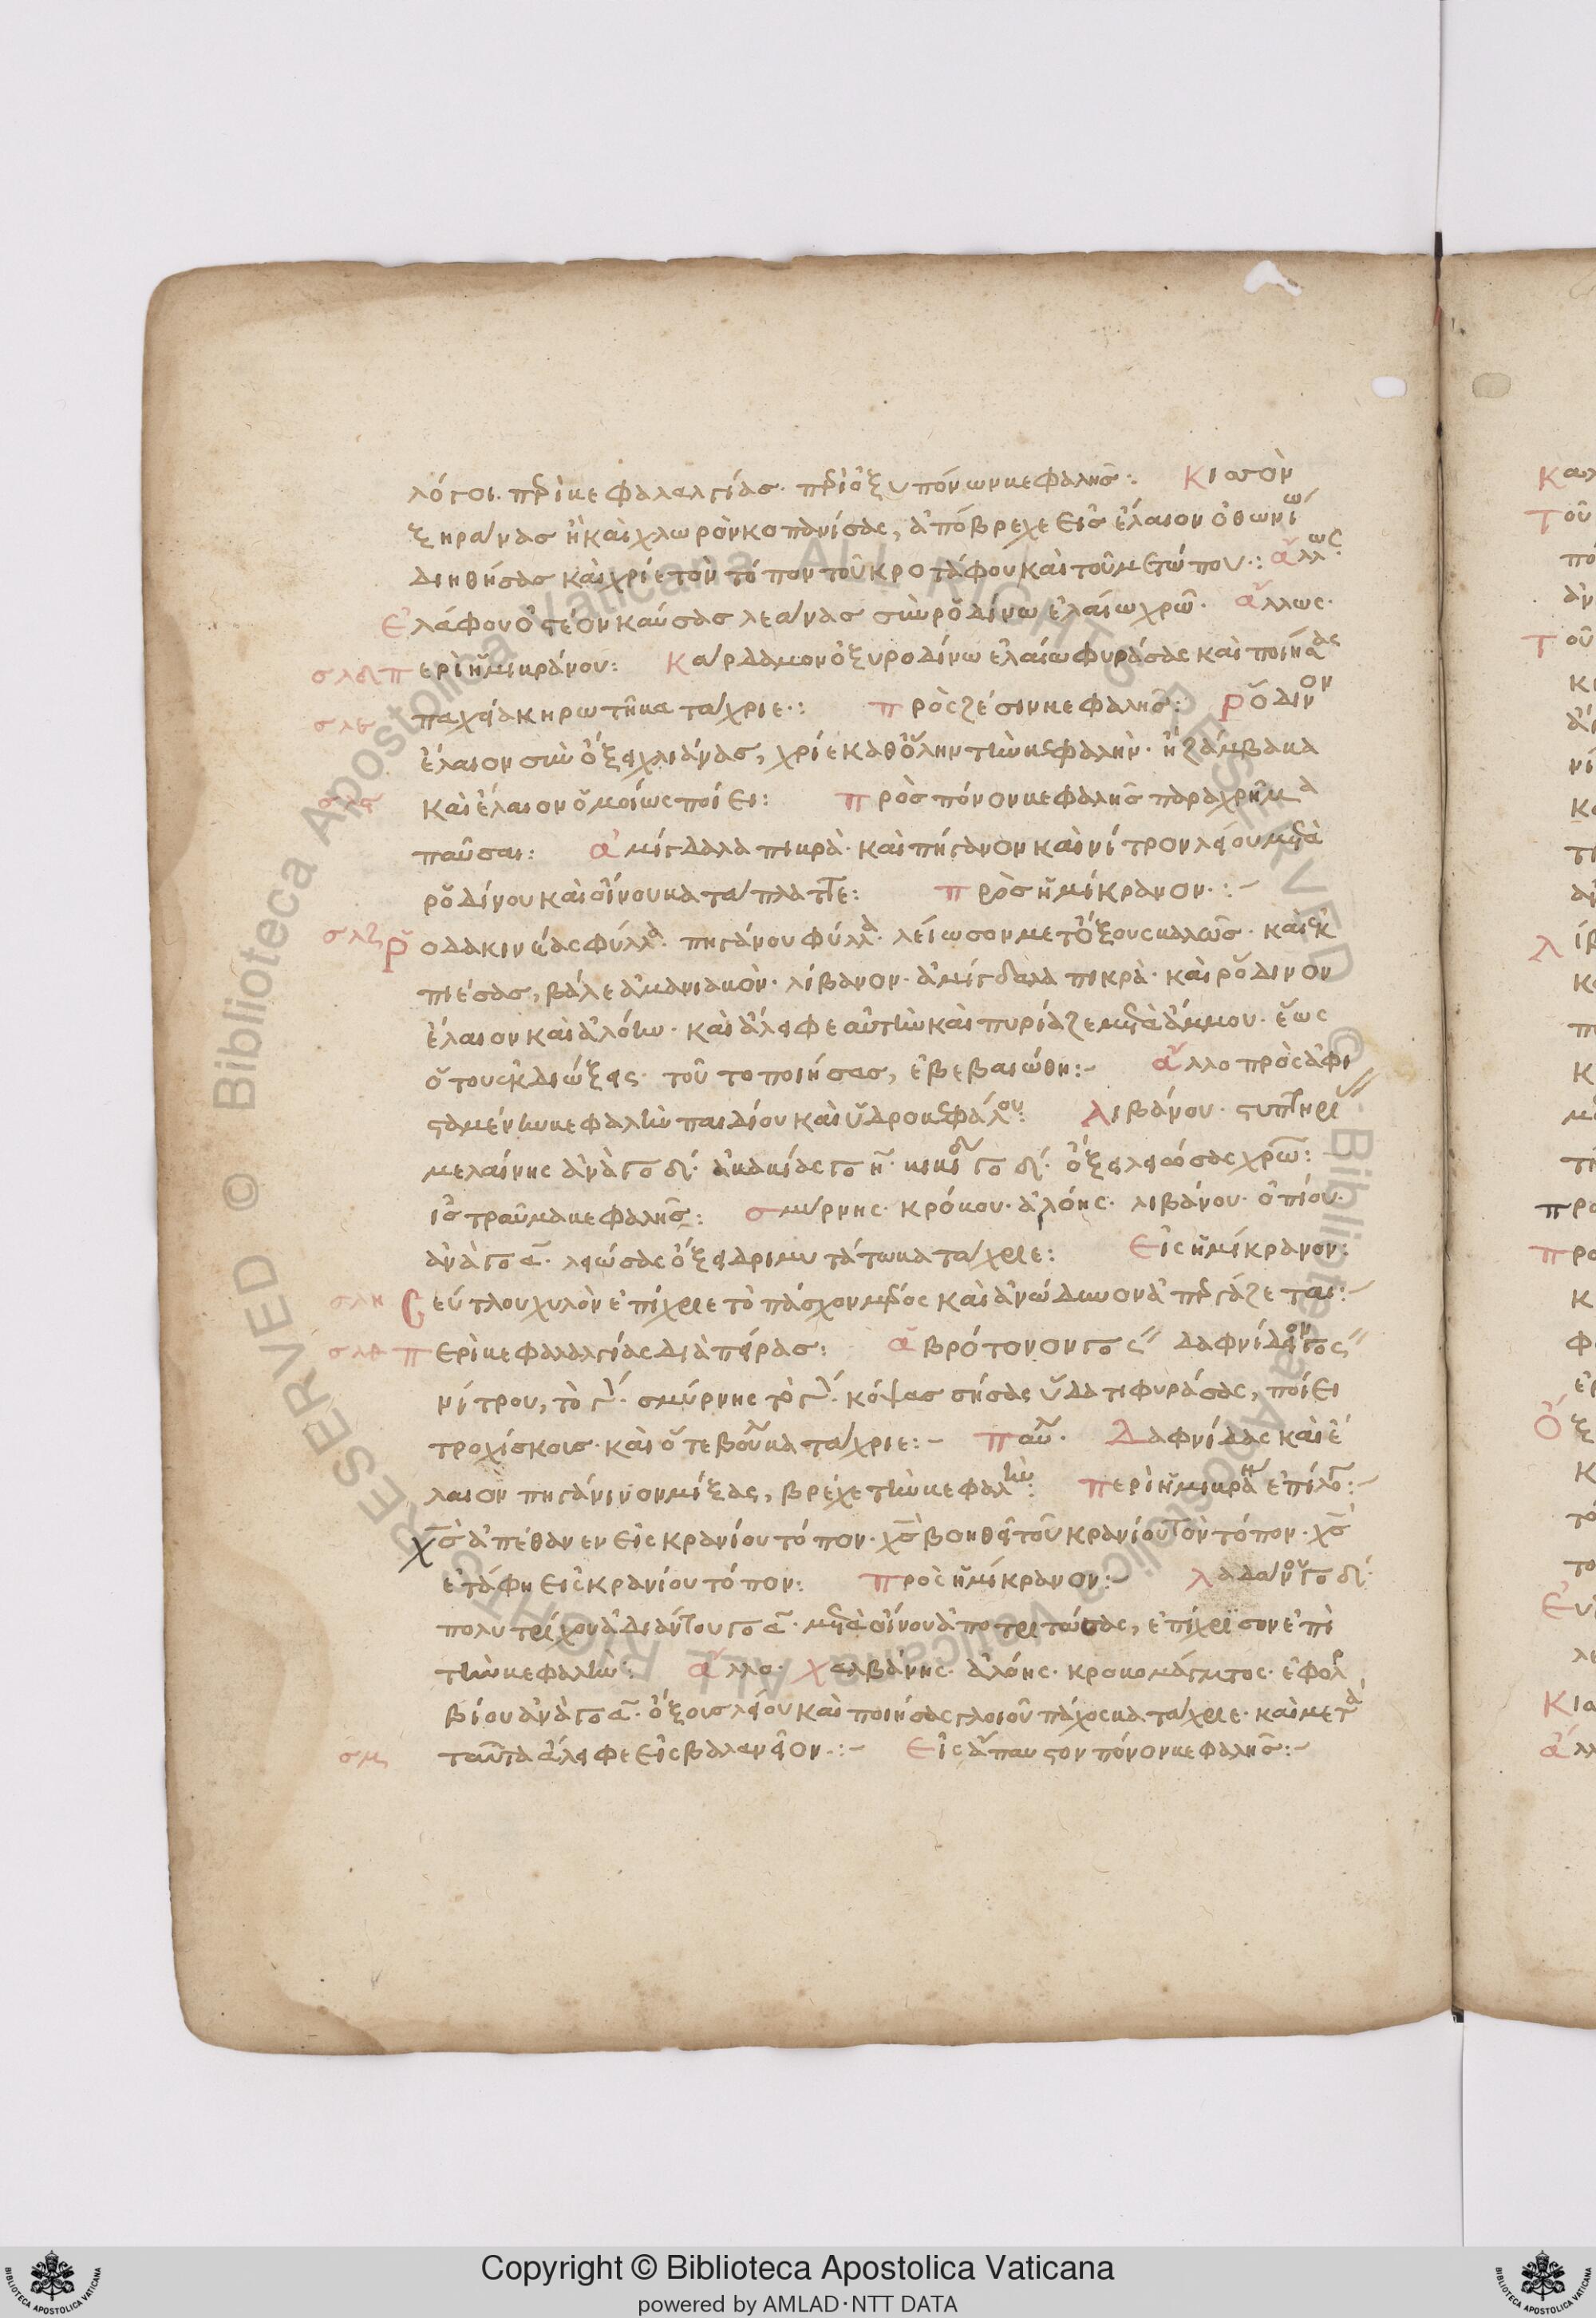 λόγοι. περὶ κεφαλαλγίας· περὶ ὀξυπόνων κεφαλῆς: Κισσὸν
ξηράνας ἢ καὶ χλωρὸν κοπανίσας, ἀπόβρεχε εἰς ἔλαιον ὀθωνίω
διηθήσας καὶ χρίε τὸν τόπον τοῦ κροτάφου καὶ τοῦ μετώπου·: ἄλλως
Ἐλάφου ὀστέον καύσας λεάνας σὺν ῥοδίνω ἐλαίω χρῶ· ἄλλως·
σλδ περὶ ἡμικράνου: Κάρδαμον ὀξυροδίνω ἐλαίω φυράσας καὶ ποιήσας
σλε πάχει ἀκηρωτῆ κατάχριε·: πρὸς ζέσιν κεφαλῆς: Ῥόδινον
ἔλαιον σὺν ὄξει χλιάνας, χρίε καθόλην τὴν κεφαλὴν· ἢ ζάμβακα
σλς καὶ ἔλαιον ὁμοίως ποίει: πρὸς πόνον κεφαλῆς παραχρῆμα
παῦσαι: ἀμίγδαλα πικρὰ· καὶ πήγανον καὶ νίτρον λείου μετὰ
ῥοδίνου καὶ οἴνου κατάπλαττε: πρὸς ἡμίκρανον·:
σλζ Ῥοδακινέας φύλλα· πηγάνου φύλλα· λείωσον μετ ὄξους καλῶς· καὶ ἐκ
πιέσας, βάλε ἀμανιακὸν· λίβανον· ἀμίγδαλα πικρὰ· καὶ ῥόδινον
ἔλαιον καὶ ἀλόην· καὶ ἄλειφε αὐτὴν καὶ πυρίαζε μετὰ ἄμμου· ἕως
οὗ τους ἐκδιώξεις· τοῦτο ποιήσας, ἐβεβαιώθη: ἄλλο πρὸς ἀφι
σταμένην κεφαλὴν παιδίου καὶ ὑδροκεφάλου: Λιβάνου· στυπτηρίας
μελαίνης ἀνὰ γο δι· ἀκακίας γο η· γο δι· ὄξει λειώσας χρῶ:
ις τραῦμα κεφαλῆς: σμύρνης· κρόκου· ἀλόης· λιβάνου· ὀπίου·
ἀνὰ γο α· λειώσας ὄξει δριμυτάτω κατάχριε: Εἰς ἡμίκρανον:
σλη Σεύτλου χυλὸν ἐπίχριε τὸ πάσχον μέρος καὶ ἀνώδυνον ἀπεργάζεται:
σλθ περὶ κεφαλαλγίας διὰ πείρας: ἀβρότονον γο ς δαφνίδιον γο ς
νίτρου, τὸ σμύρνης τὸ κόψας σήσας ὕδατι φυράσας, ποίει
τροχίσκοις· καὶ ὅτε βούλει κατάχριε: παῦ· Δαφνίδας καὶ ἔ
λαιον πηγάνινον μίξας, βρέχε τὴν κεφαλὴν: περὶ ἡμικράνου ἐπίλο:
χς ἀπέθανεν εἰς κρανίου τόπον· χς βοηθεῖ τοῦ κρανίου τὸν τόπον· χς
ἐτάφη εἰς κρανίου τόπον: πρὸς ἡμίκρανον: λαδάνου γο δι·
πολυτρίχου ἀδιάντου γο α· μετὰ οἴνου ἀποτριτώσας, ἐπίχρισον ἐπὶ
τὴν κεφαλὴν: ἄλλο· χαλβάνης· ἀλόης· κροκομάγματος· ἐφορ
βίου ἀνὰ γο α· ὄξους λείου καὶ ποιήσας γλοιοῦ πάχος κατάχριε· καὶ μετὰ
σμ ταῦτα ἄλειφε εἰς βαλανεῖον·: Εἰς ἄπαυστον πόνον κεφαλῆς:
Copyright © Biblioteca Apostolica Vaticana
powered by AMLAD·NTT DATA